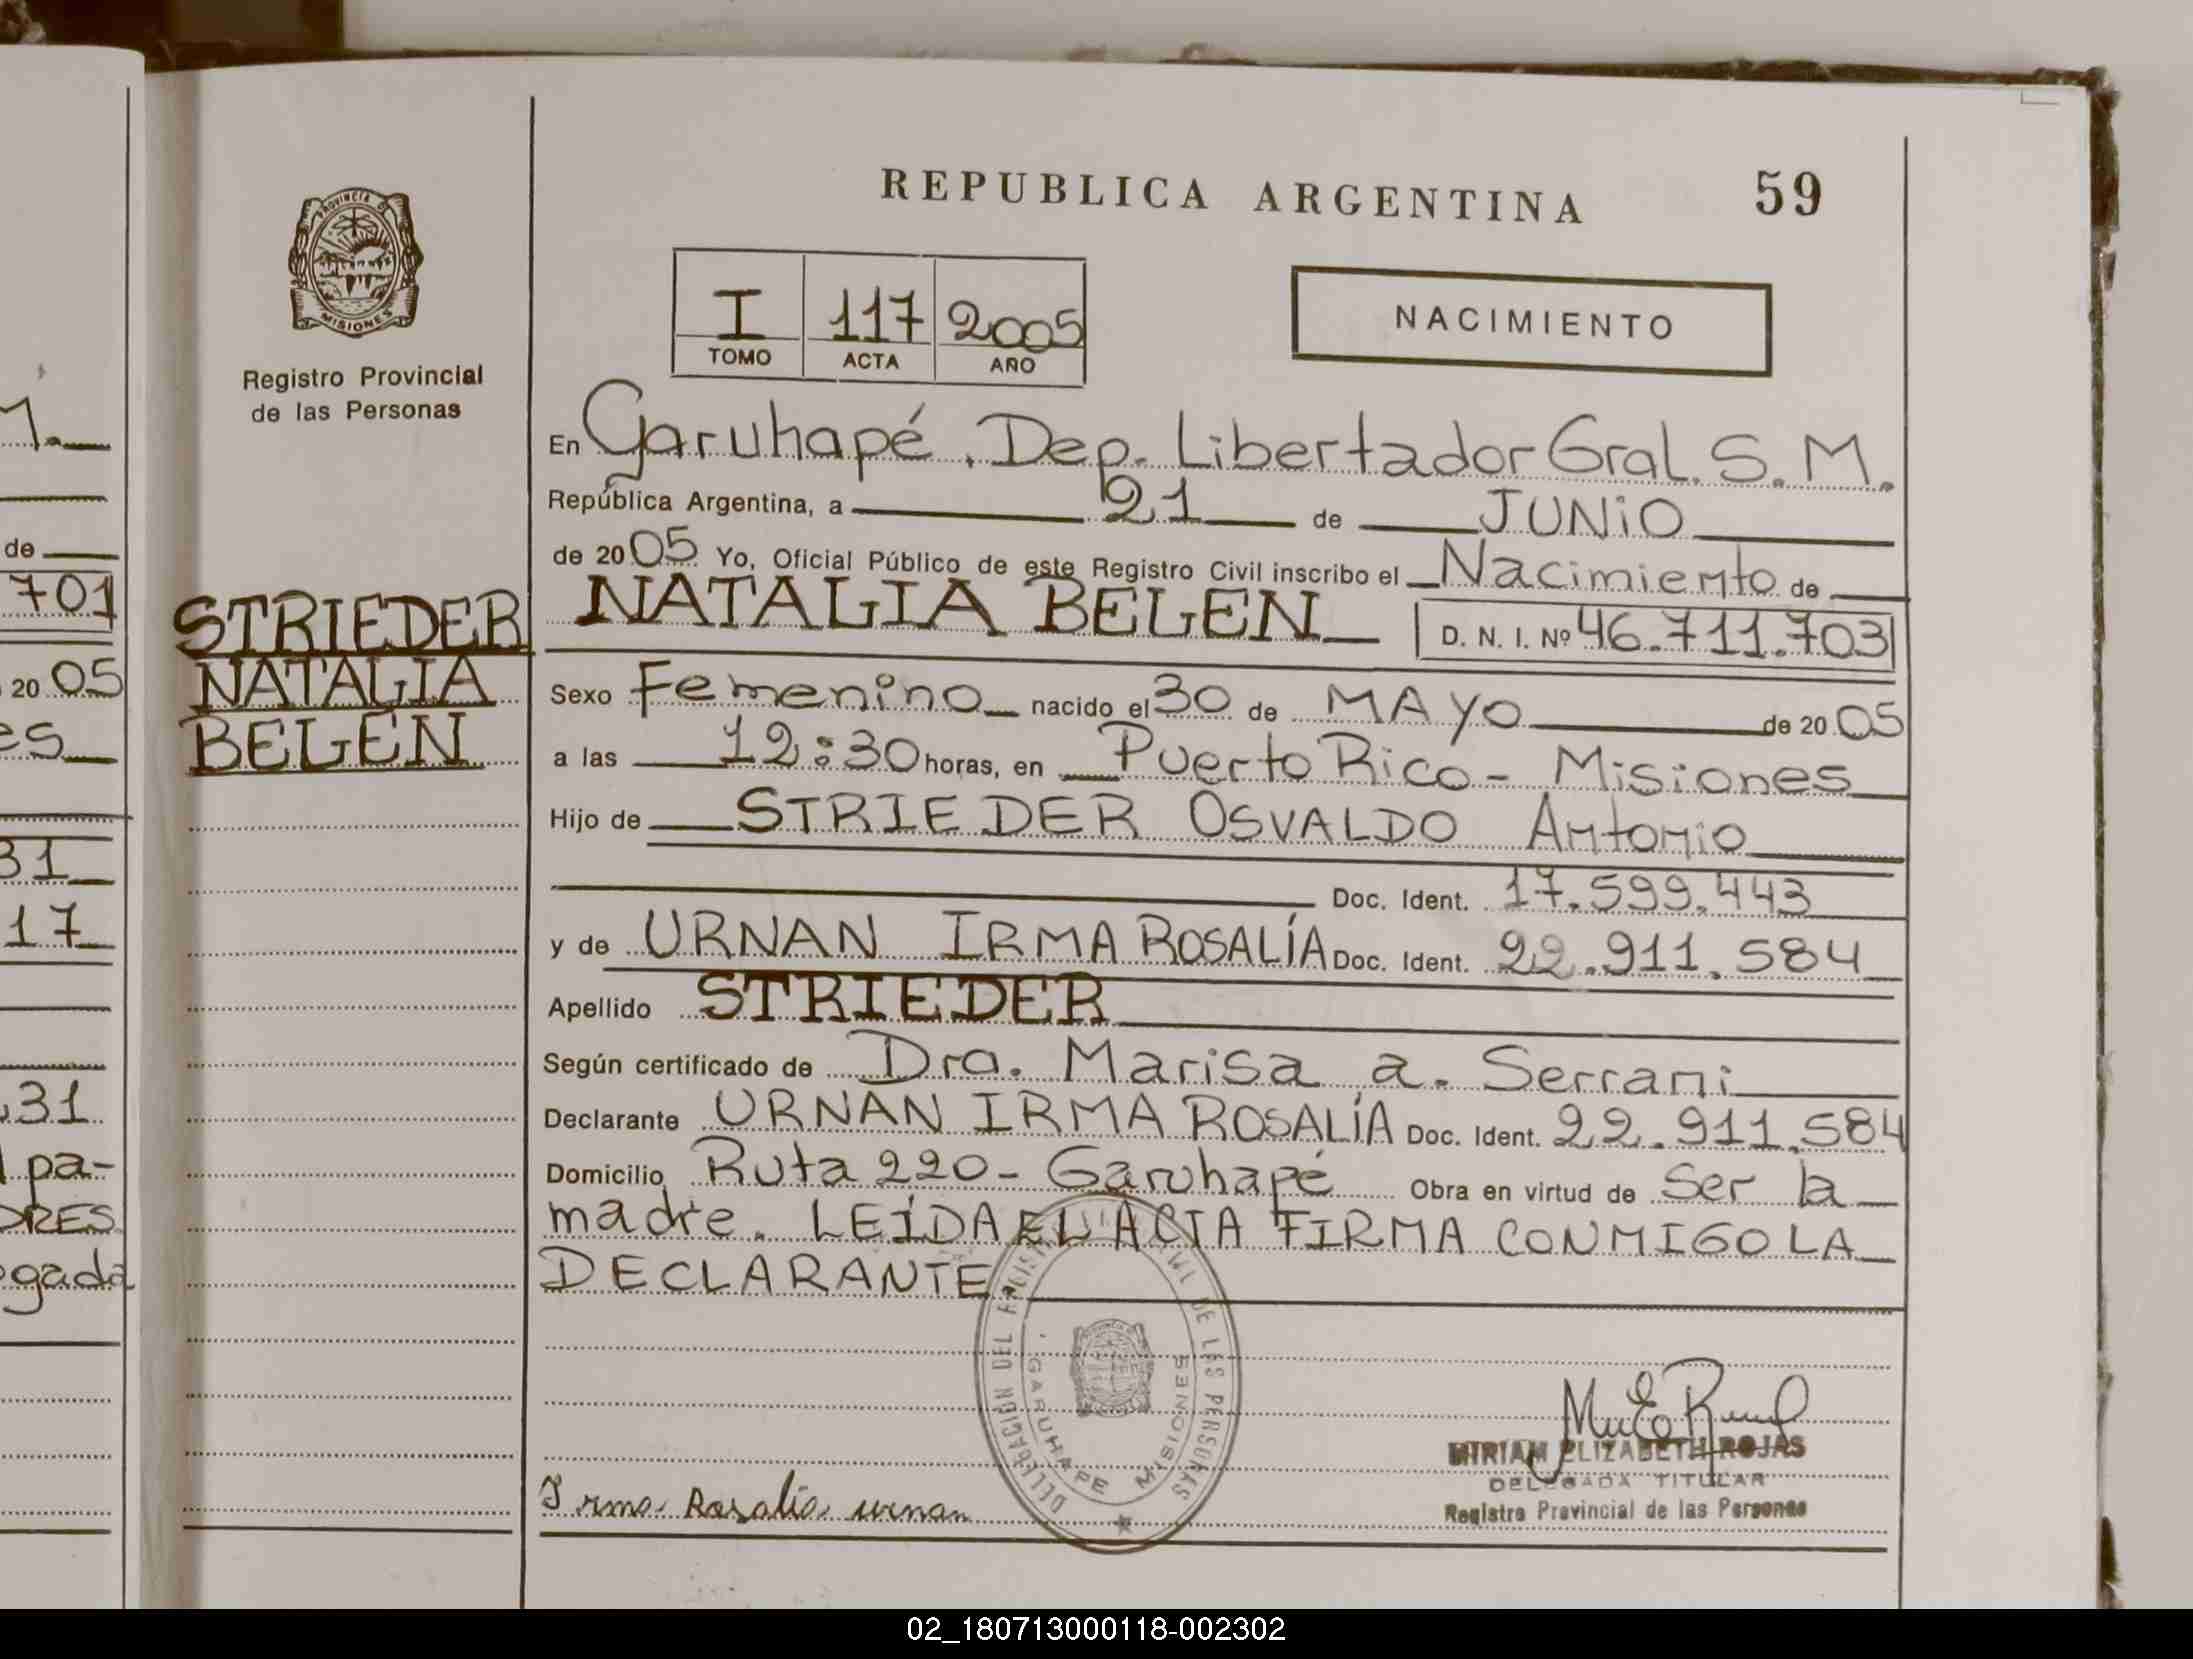 REPUBLICA ARGENTINA 59
PROVINCIA DE
MISIONES
Registro Provincial
de las Personas
I 117 2005
TOMO ACTA AÑO
NACIMIENTO
En Garuhapé, Dep. Libertador Gral. S. M.
República Argentina, a 21 de JUNIO
de 2005 Yo, Oficial Público de este Registro Civil inscribo el Nacimiento de
NATALIA BELEN D. N. I. Nº 46.711.703
STRIEDER
NATALIA
BELEN
Sexo Femenino nacido el 30 de MAYO de 2005
a las 12:30 horas, en Puerto Rico - Misiones
Hijo de STRIEDER OSVALDO Antonio
Doc. Ident. 17.599.443
y de URNAN IRMA ROSALÍA Doc. Ident. 22.911.584
Apellido STRIEDER
Según certificado de Dra. Marisa a. Serrani
Declarante URNAN IRMA ROSALÍA Doc. Ident. 22.911.584
Domicilio Ruta 220 - Garuhapé Obra en virtud de ser la
madre. LEÍDA EL ACTA FIRMA CONMIGO LA
DECLARANTE
DELEGACION DEL DE LES PERSONAS
GARUHAPE MISIONES
MIRIAM ELIZABETH ROJAS
DELEGADA TITULAR
Registro Provincial de las Personas
Irma Rosalia urnan
M.
de
701
20 05
es
31
17
31
pa-
DRES
gada
02_180713000118-002302